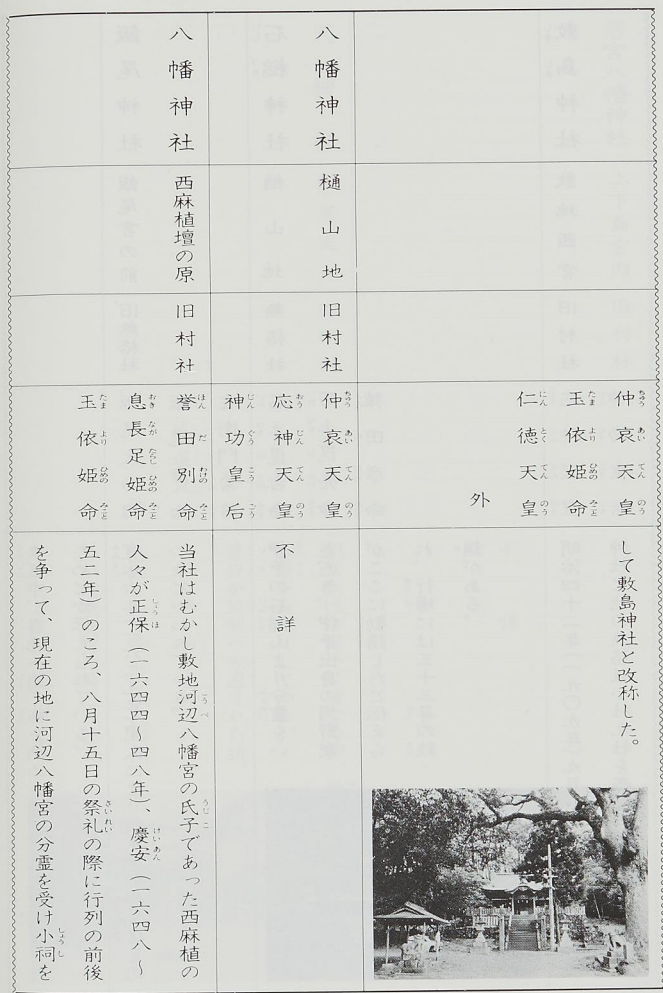 仲哀天皇
玉依姫命
仁徳天皇
外
して敷島神社と改称した。
八幡神社
樋山地
旧村社
仲哀天皇
応神天皇
神功皇后
不詳
八幡神社
西麻植壇の原
旧村社
誉田別命
息長足姫命
玉依姫命
当社はむかし敷地河辺八幡宮の氏子であった西麻植の
人々が正保（一六四四〜四八年）、慶安（一六四八〜
五二年）のころ、八月十五日の祭礼の際に行列の前後
を争って、現在の地に河辺八幡宮の分霊を受け小祠を